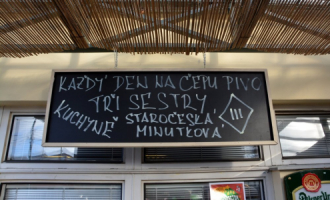 KAŽDÝ DEN NA ČEPU PIVO
TŘI SESTRY
KUCHYNĚ STAROČESKÁ III
MINUTKOVÁ